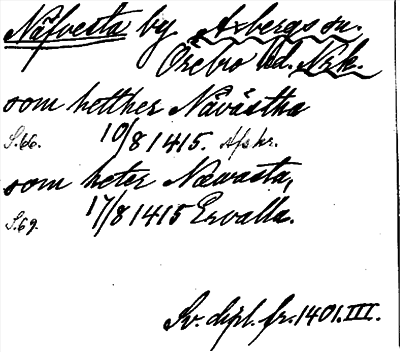 Näfvesta by Axbergs sn.
Örebro hd. Nrk.
som hetther Nävästha
S. 66. 10/8 1415. Afskr.
som heter Næwasta,
S. 69. 17/8 1415 Ervalla.
Sv. dipl. fr. 1401. III.